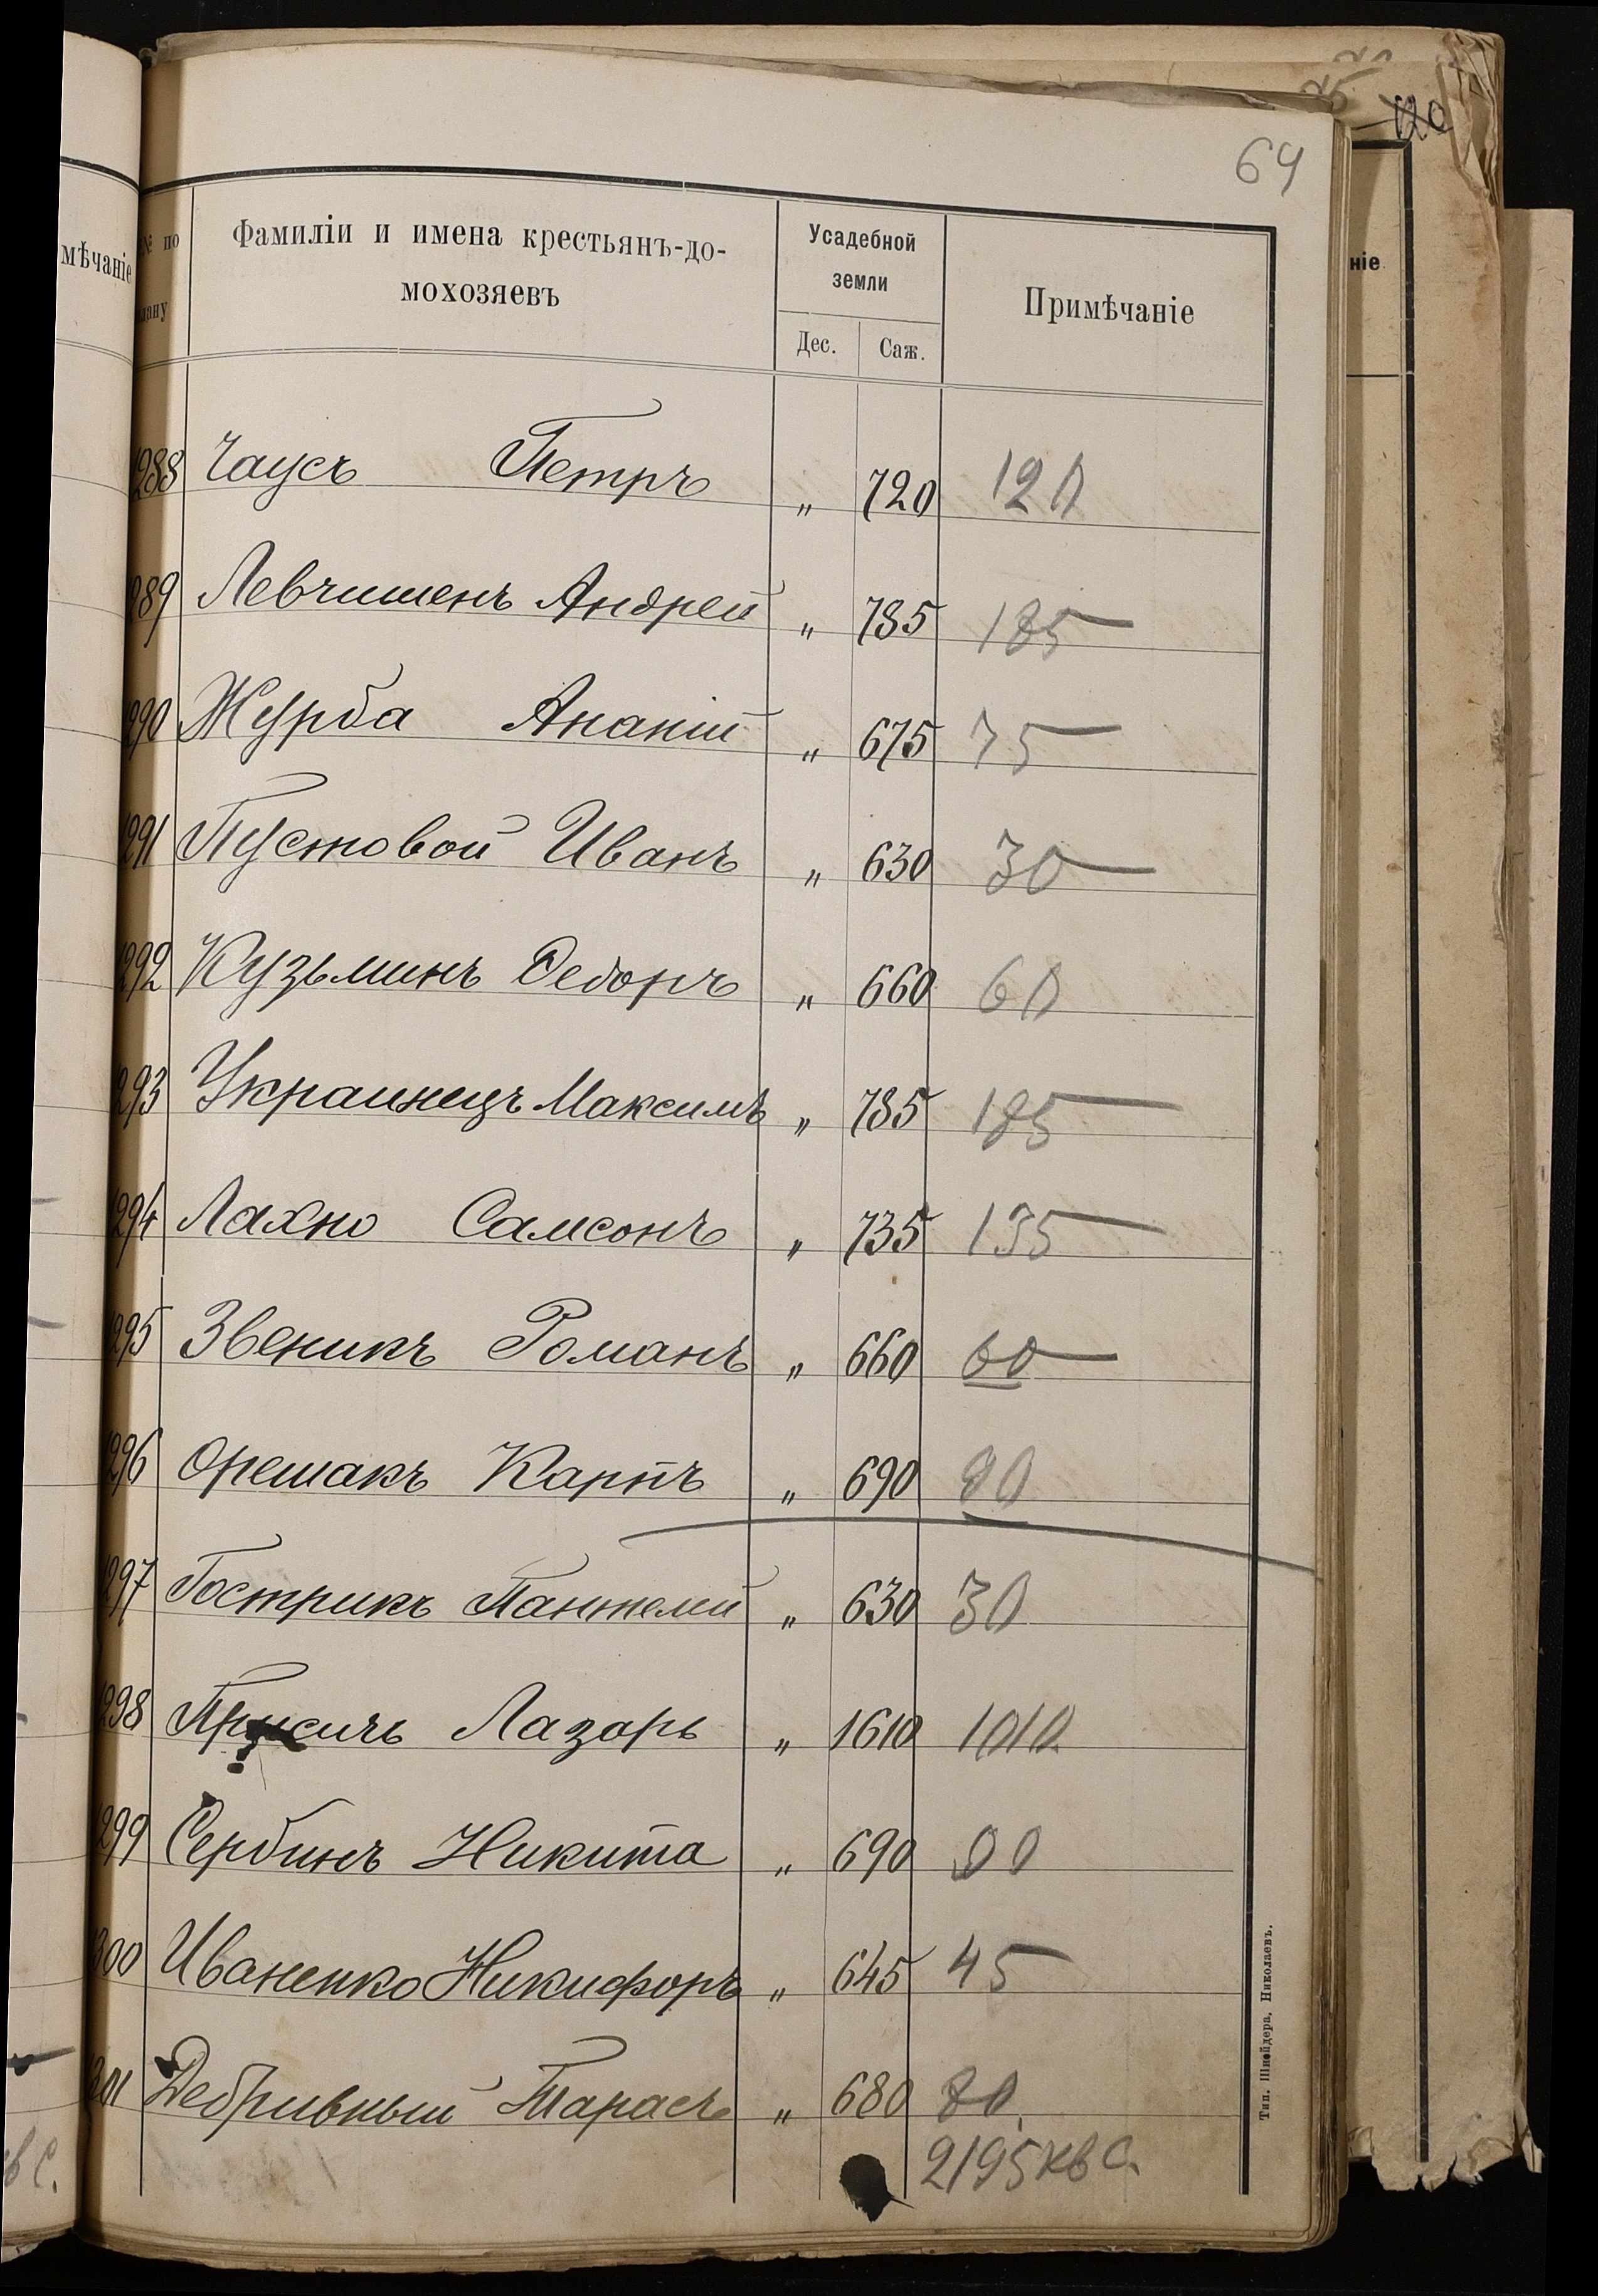 64
120
мѣчаніе
№ по
плану
Фамиліи и имена крестьянъ-до-
мохозяевъ
Усадебной
земли
Дес.
Саж.
Примѣчаніе
ніе
288 Чаусъ Петръ „ 720 120
289 Левчишенъ Андрей „ 785 185
290 Журба Ананій „ 675 75
291 Пустовой Иванъ „ 630 30
292 Кузьминъ Ѳедоръ „ 660 60
293 Украинецъ Максимъ „ 785 185
294 Лахно Самсонъ „ 735 135
295 Звеникъ Романъ „ 660 60
296 Орешакъ Карпъ „ 690 90
297 Гострикъ Пантелей „ 630 30
298 Лазарь „ 1610 1010
299 Сербинъ Никита „ 690 90
300 Иваненко Никифоръ „ 645 45
301 Дебривный Тарасъ „ 680 80
2195 кв с.
в с.
Тип. Шнейдера, Николаевъ.